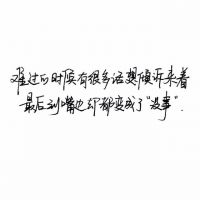 难过的时候有很多话想倾诉来着
最后到嘴边却都变成了“没事”.